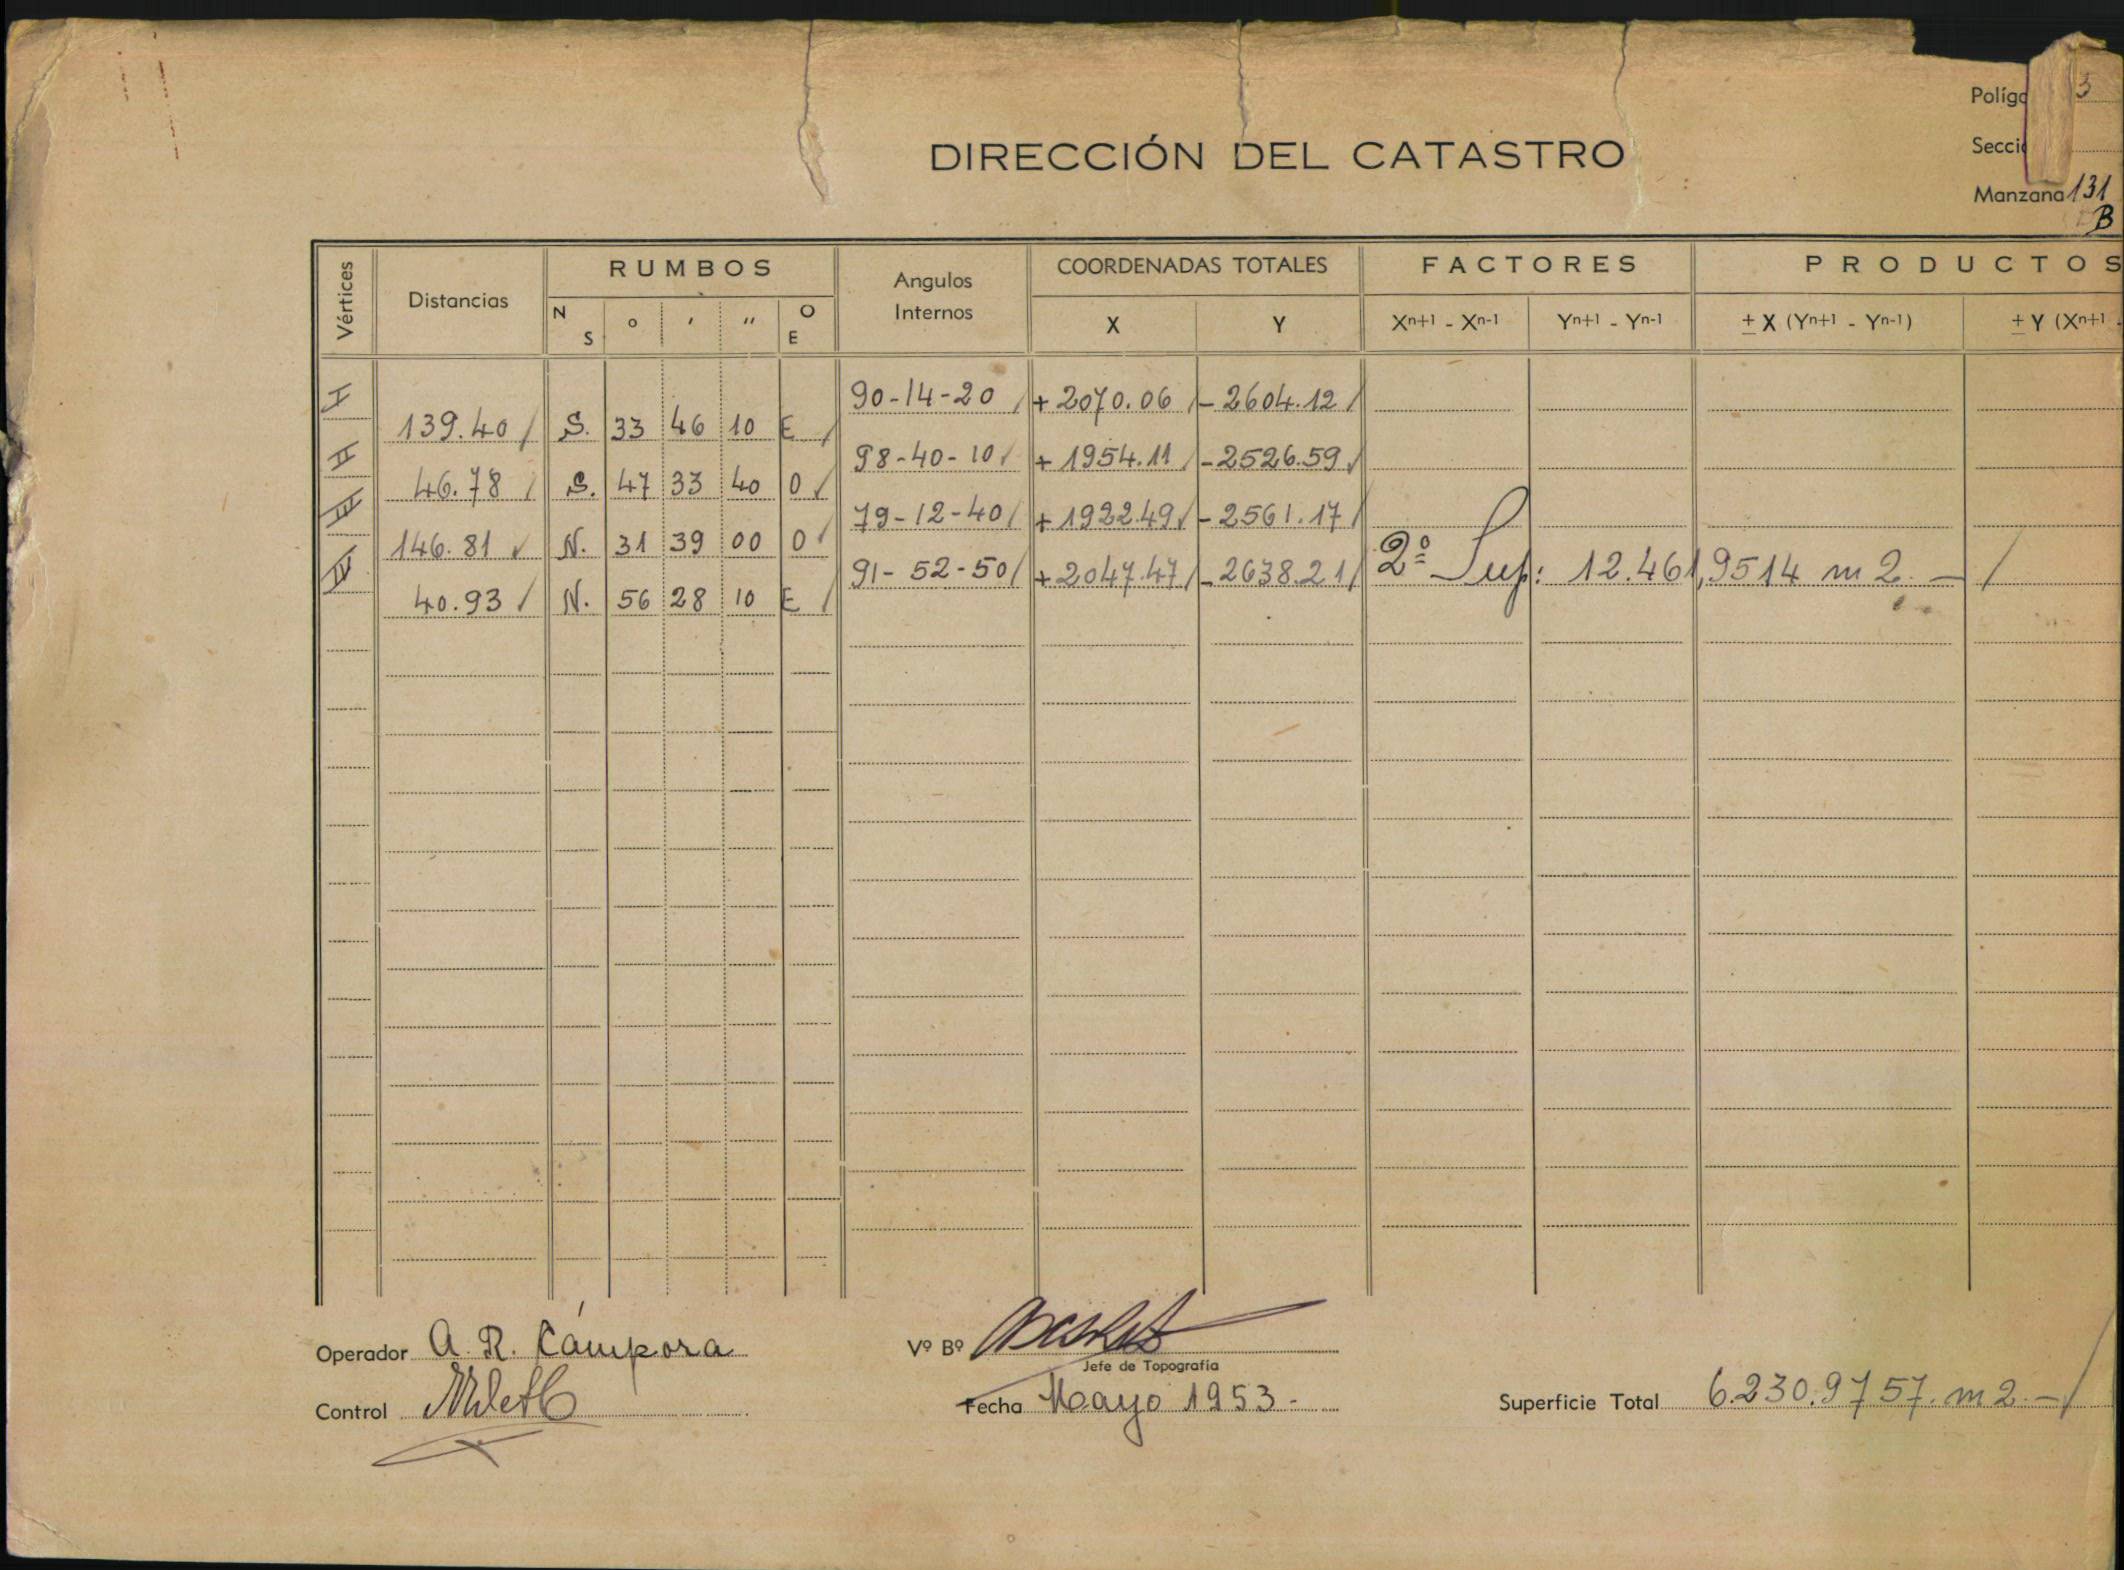 Políg 3
DIRECCIÓN DEL CATASTRO
Secci
Manzana 131
B
Vértices Distancias RUMBOS Angulos Internos COORDENADAS TOTALES FACTORES PRODUCTOS
N S o ' '' O E X Y Xn+1 - Xn-1 Yn+1 - Yn-1 ± X (Yn+1 - Yn-1) ± Y (Xn+1
I 90-14-20 +2070.06 -2604.12
139.40 S. 33 46 10 E
II 98-40-10 +1954.11 -2526.59
46.78 S. 47 33 40 O
III 79-12-40 +1922.49 -2561.17
146.81 N. 31 39 00 O
IV 91-52-50 +2047.47 -2638.21 2º Sup: 12.461,9514 m2.-
40.93 N. 56 28 10 E
Operador A. R. Cámpora Vº Bº
Jefe de Topografía
Control Fecha Mayo 1953.- Superficie Total 6.230.9757.m2.-